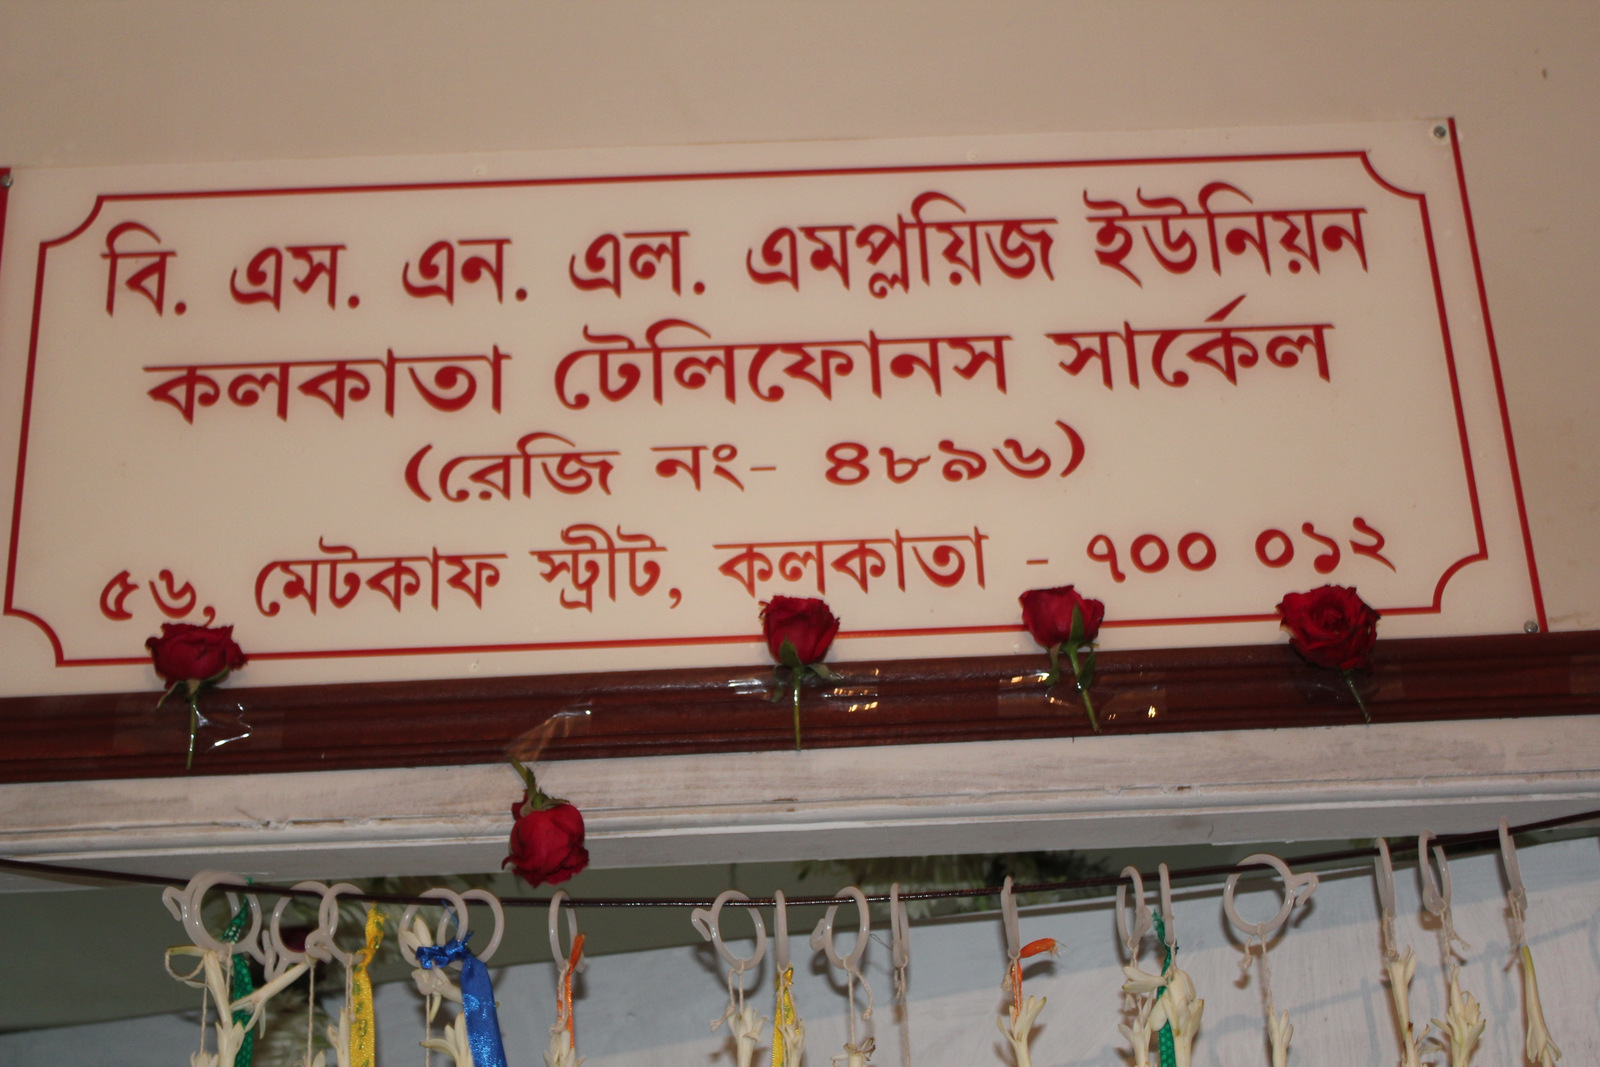 বি. এস. এন. এল. এমপ্লয়িজ ইউনিয়ন
কলকাতা টেলিফোনস সার্কেল
(রেজি নং- ৪৮৯৬)
৫৬, মেটকাফ স্ট্রীট, কলকাতা - ৭০০ ০১২